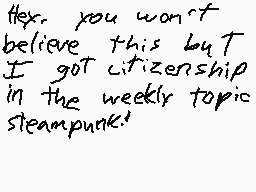 Hey. you won't
believe this but
I got citizenship
in the weekly topic
steampunk!